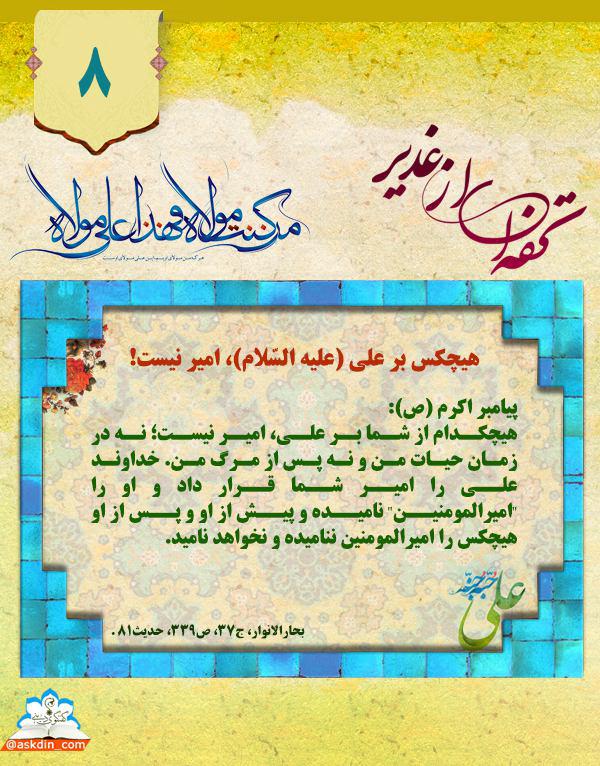 ۸
تحفه‌ای از غدیر
من کنت مولاه فهذا علی مولاه
هر که من مولای اویم این علی مولای اوست
هیچکس بر علی (علیه السّلام)، امیر نیست!
پیامبر اکرم (ص):
هیچکدام از شما بر علی، امیر نیست؛ نه در
زمان حیات من و نه پس از مرگ من. خداوند
علی را امیر شما قرار داد و او را
"امیرالمومنین" نامیده و پیش از او و پس از او
هیچکس را امیرالمومنین ننامیده و نخواهد نامید.
علی حبه جنة
بحارالانوار، ج۳۷، ص۳۳۹، حدیث۸۱.
@askdin_com